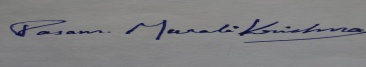 Pasam. Murali Krishna